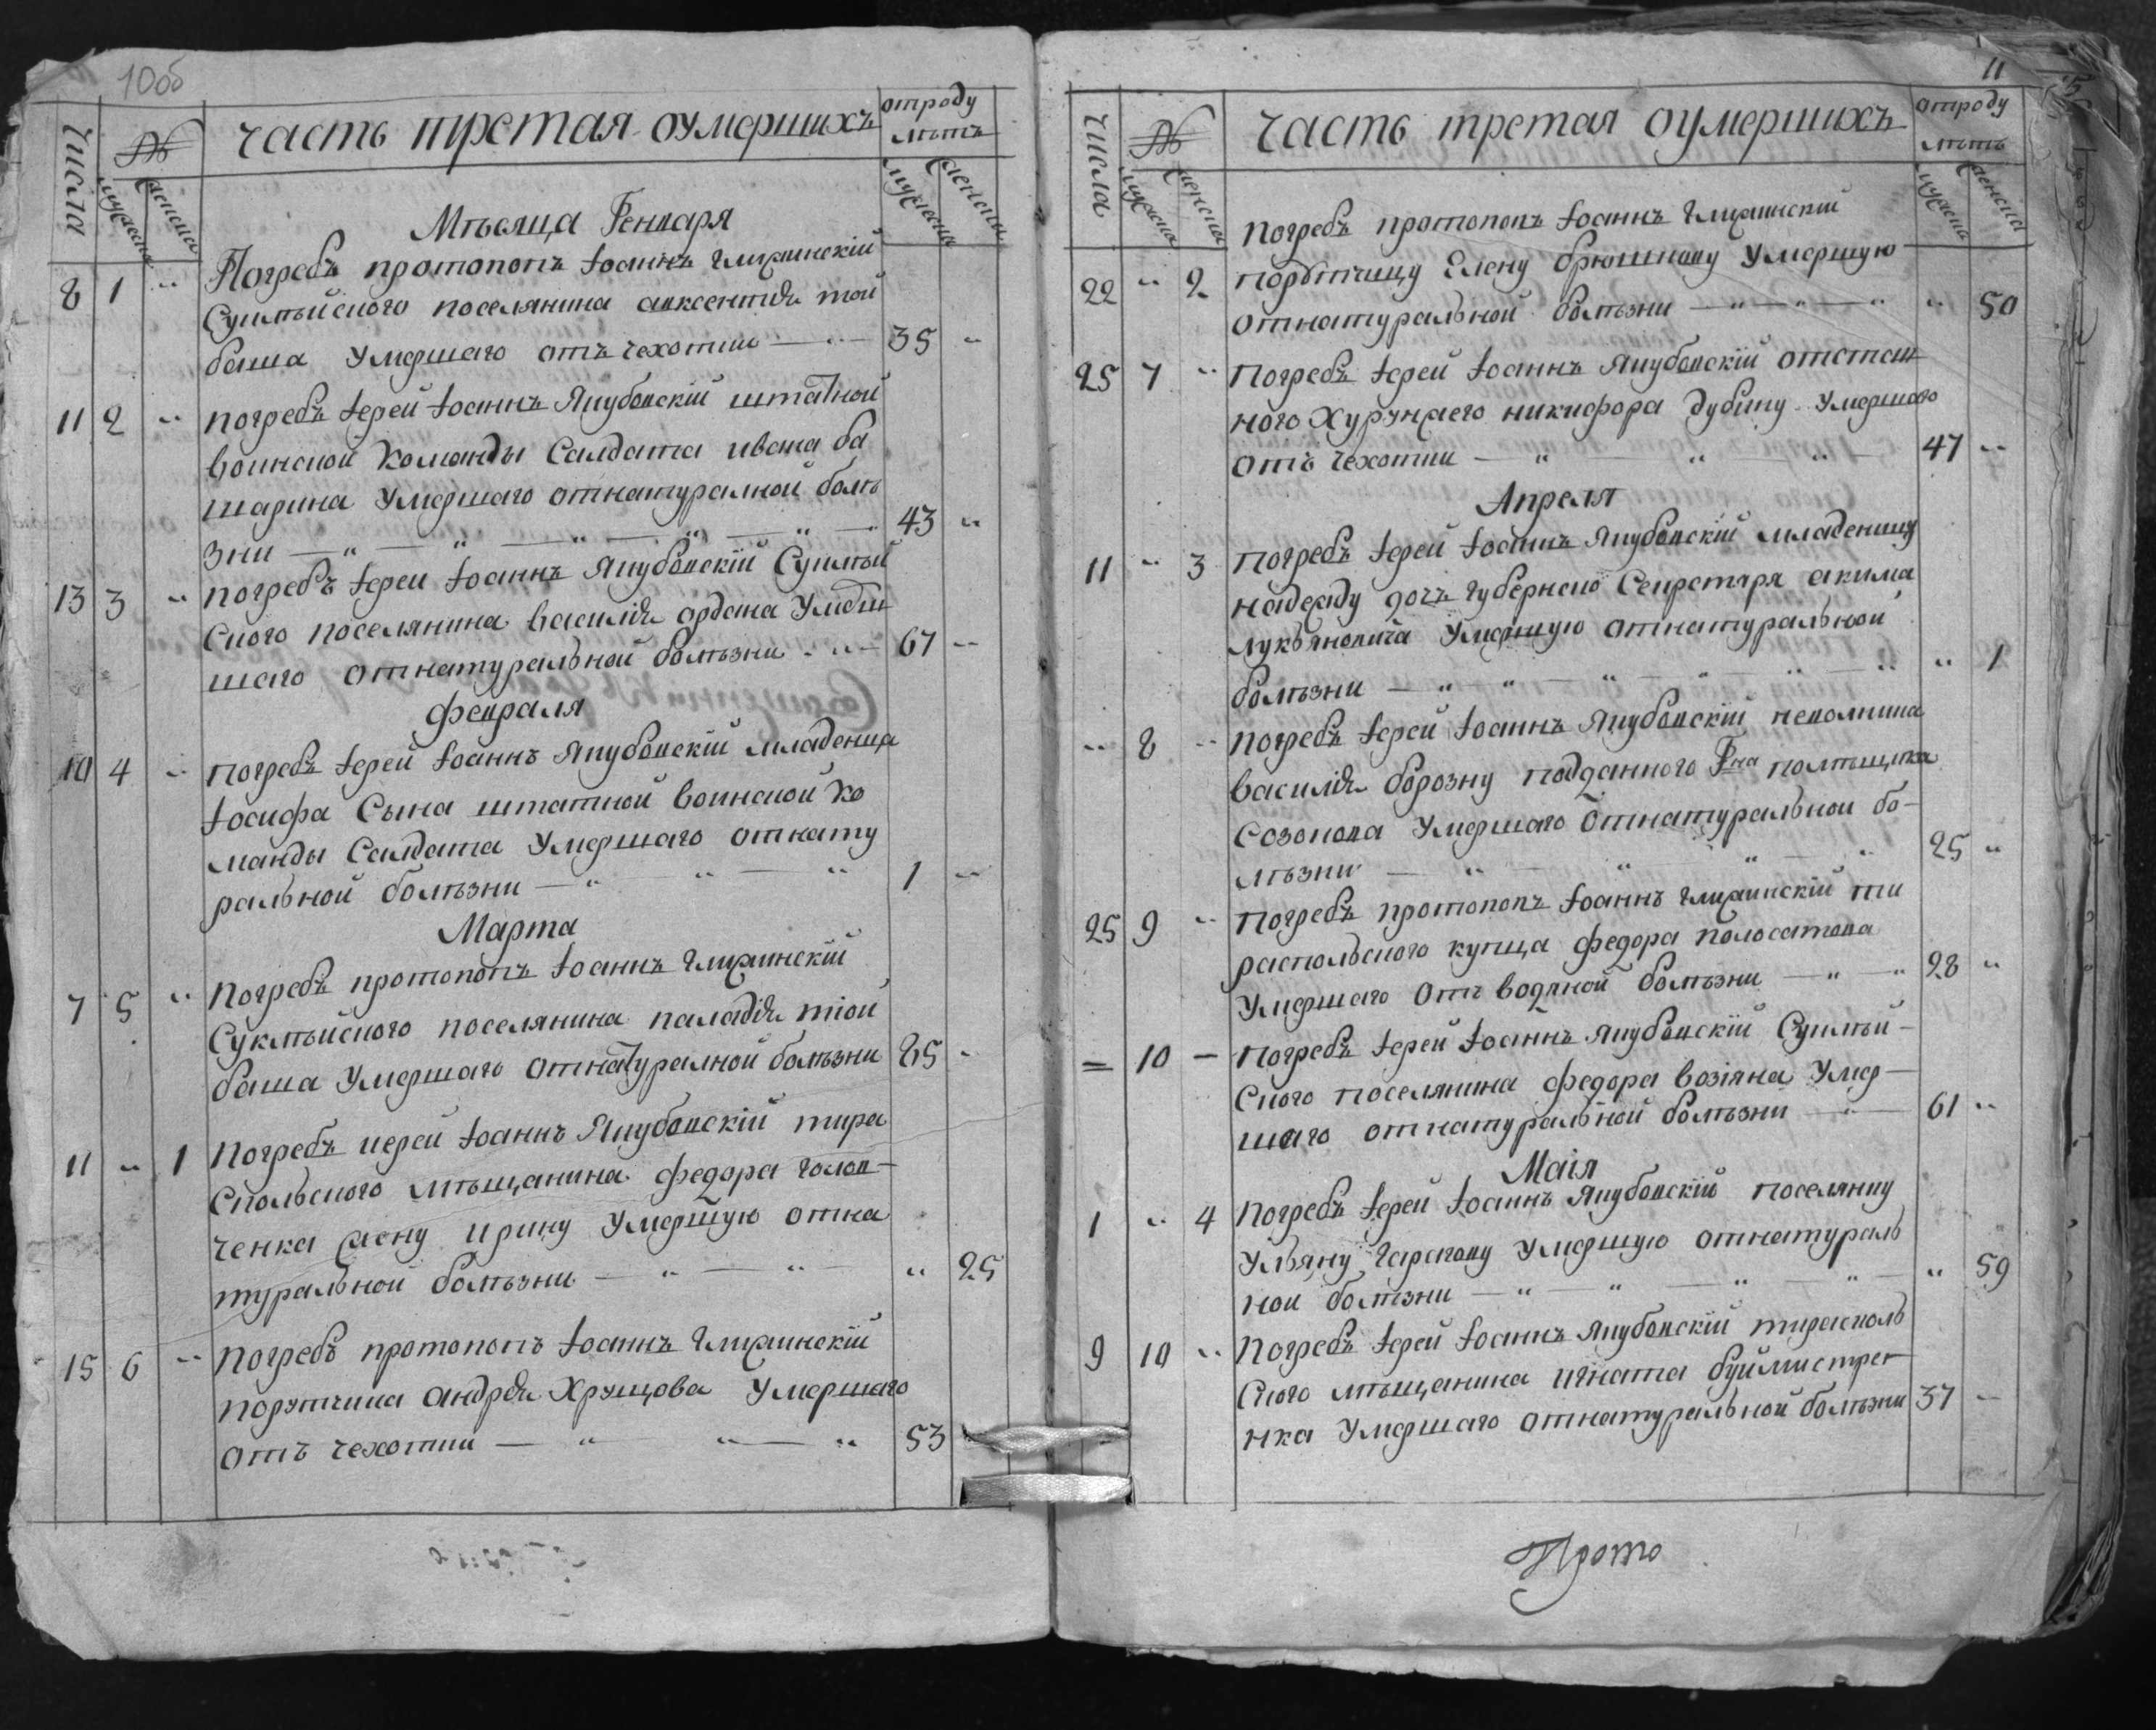 10об
Числа
№
мужеска
женска
часть третая оумершихъ
отроду
лѣтъ
мужеска
женска
Мѣсяца Генваря
8 1 " Погребъ протопопъ Іоаннъ Глижинскій
Суклѣйского поселянина авксентія той
баша Умершаго отъ чехотки 35 "
11 2 " Погребъ Іерей Іоаннъ Якубовскій штатной
воинской Команды Салдата ивана ба
шарина Умершаго отнатуралной болѣ
зни 43 "
13 3 " Погребъ Іереи Іоаннъ Якубовскій Суклѣй
Ского поселянина василія ордана Умер
шаго отнатуральной болѣзни 67 "
Февраля
10 4 " Погребъ Іерей Іоаннъ Якубовскій младенца
Іосифа Сына штатной воинской Ко
манды Салдата Умершаго отнату
ральной болѣзни 1 "
Марта
7 5 " Погребъ протопопъ Іоаннъ Глижинскій
Суклѣйского поселянина паладія тіой
баша Умершаго отнатуралной болѣзни 85 "
11 " 1 Погребъ иерей Іоаннъ Якубовскій тира
Спольского мѣщанина федора голов-
ченка жену ирину Умершую отна
туральной болѣзни " 25
15 6 " Погребъ протопопъ Іоаннъ Глижинскій
порутчика андрея Хрущова Умершаго
отъ чехотки 53
11
Числа
№
мужеска
женска
часть третая оумершихъ
отроду
лѣтъ
мужеска
женска
Погребъ протопопъ Іоаннъ Глижинскій
22 " 2 порутчицу Елену брюшкову Умершую
отнатуральной болѣзни " 50
25 7 " Погребъ Іерей Іоаннъ Якубовскій отстав
ного Хурунжего никифора дубину Умершаго
отъ чехотки 47 "
Апреля
11 " 3 Погребъ Іерей Іоаннъ Якубовскій младеницу
надежду дочь губернско Секретаря акима
лукьяновича Умершую отнатуральной
болѣзни " 1
" 8 " Погребъ Іерей Іоаннъ Якубовскій невольника
василія борозну подданного Гна помѣщика
Созонова Умершаго Отнатуральной бо-
лѣзни 25 "
25 9 " Погребъ протопопъ Іоаннъ Глижинскій ти
распольского купца федора полосатова
Умершаго Отъ водяной болѣзни 28 "
= 10 - Погребъ Іерей Іоаннъ Якубовскій Суклѣй-
Ского поселянина федора возіяна Умер-
шаго отнатуральной болѣзни 61 "
Маія
1 " 4 Погребъ Іерей Іоаннъ Якубовскій поселянку
Ульяну Умершую отнатураль
ной болѣзни " 59
9 10 " Погребъ Іерей Іоаннъ Якубовскій тирасполь
Ского мѣщанина игната буймистре
нка Умершаго отнатуральной болѣзни 37 "
Прото